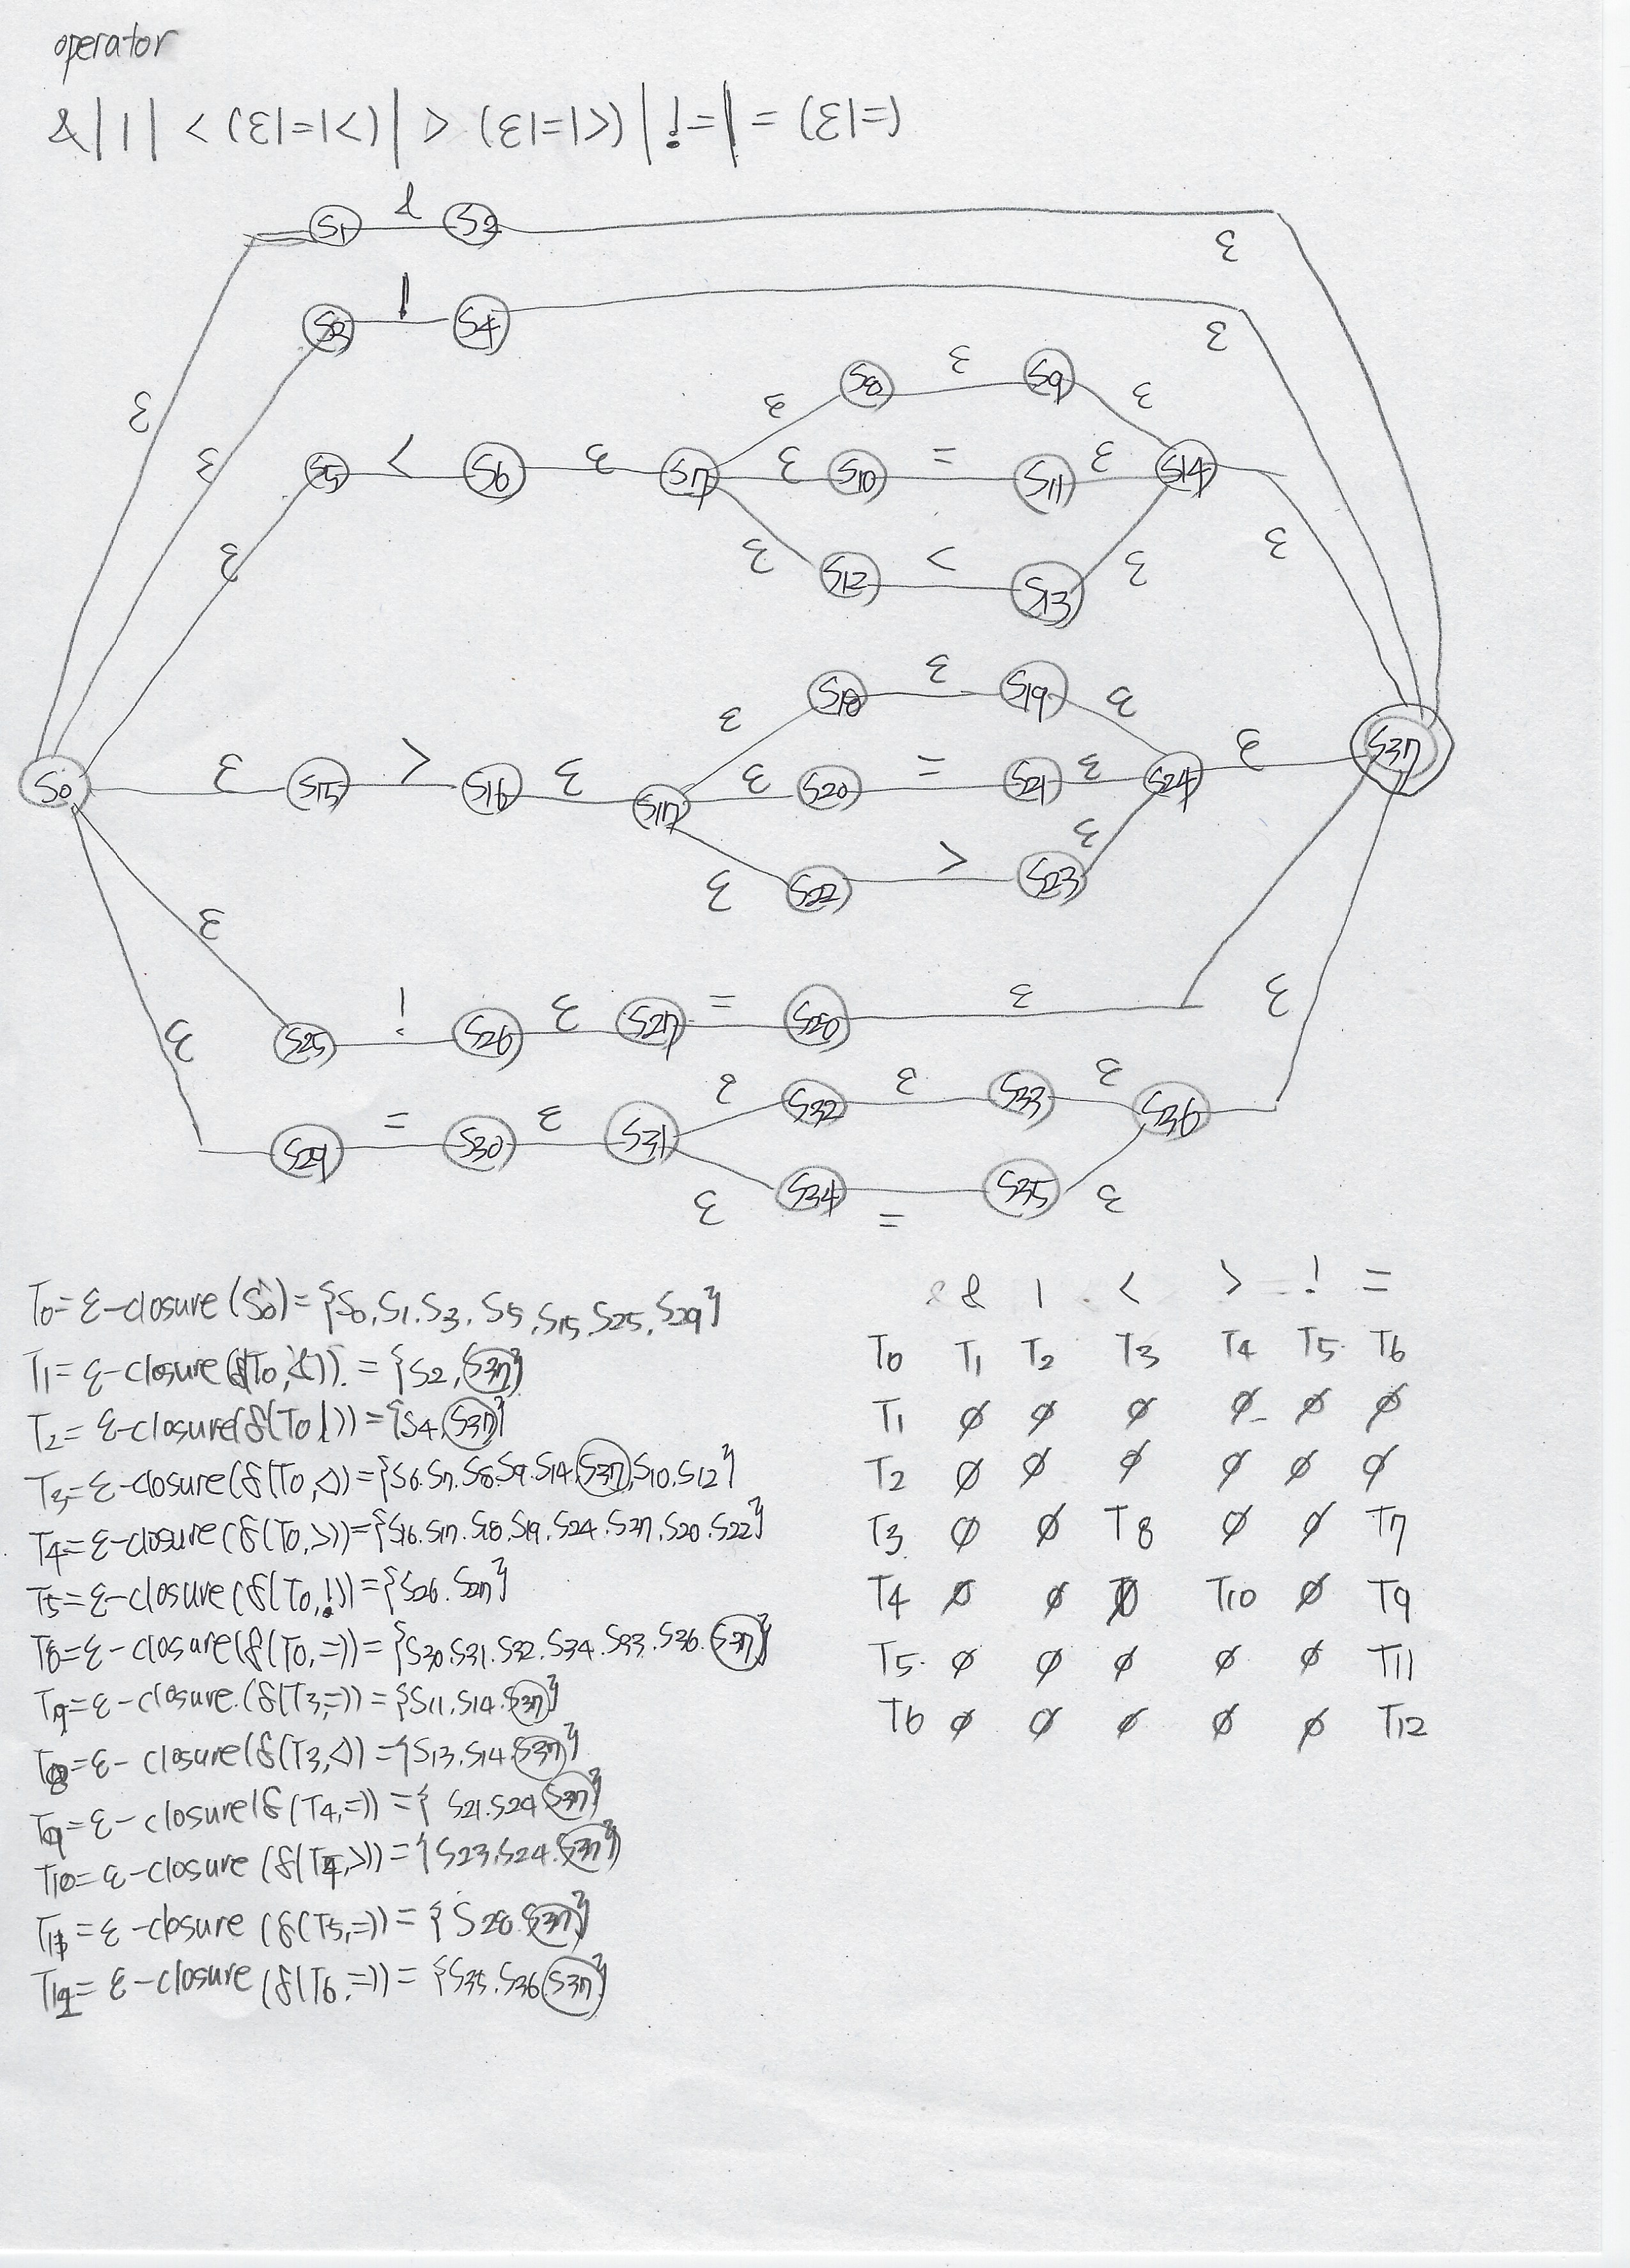 operator
& | | | < (ε|=|<) | > (ε|=|>) | != | = (ε|=)
S1 & S2 ε
S3 | S4 ε
S8 ε S9
ε ε ε
S5 < S6 ε S7 ε S10 = S11 ε S14
ε ε S12 < S13 ε ε
S18 ε S19 ε
ε
S0 ε S15 > S16 ε S17 ε S20 = S21 ε S24 ε S37
ε S22 > S23 ε
ε
S25 ! S26 ε S27 = S28 ε ε
ε
ε S32 ε S33 ε
S29 = S30 ε S31 S36
ε S34 = S35 ε
T0 = ε-closure (S0) = {S0, S1, S3, S5, S15, S25, S29}
T1 = ε-closure(δ(T0, &)) = {S2, S37}
T2 = ε-closure(δ(T0 |)) = {S4, S37}
T3 = ε-closure(δ(T0, <) = {S6. S7. S8. S9. S14, S37, S10. S12}
T4 = ε-closure(δ(T0, >)) = {S16. S17. S18. S19, S24. S37, S20. S22}
T5 = ε-closure(δ(T0, !)) = {S26. S27}
T6 = ε-closure(δ(T0, =)) = {S30. S31. S32. S34. S33. S36. S37}
T7 = ε-closure.(δ(T3, =)) = {S11, S14. S37}
T8 = ε-closure(δ(T3, <) = {S13. S14. S37}
T9 = ε-closure(δ(T4, =)) = { S21. S24 S37}
T10 = ε-closure (δ(T4, >)) = {S23, S24. S37}
T11 = ε-closure (δ(T5, =)) = {S28. S37}
T12 = ε-closure (δ(T6, =)) = {S35. S36 S37}
& | < > ! =
T0 T1 T2 T3 T4 T5 T6
T1 ∅ ∅ ∅ ∅ ∅ ∅
T2 ∅ ∅ ∅ ∅ ∅ ∅
T3 ∅ ∅ T8 ∅ ∅ T7
T4 ∅ ∅ ∅ T10 ∅ T9
T5 ∅ ∅ ∅ ∅ ∅ T11
T6 ∅ ∅ ∅ ∅ ∅ T12